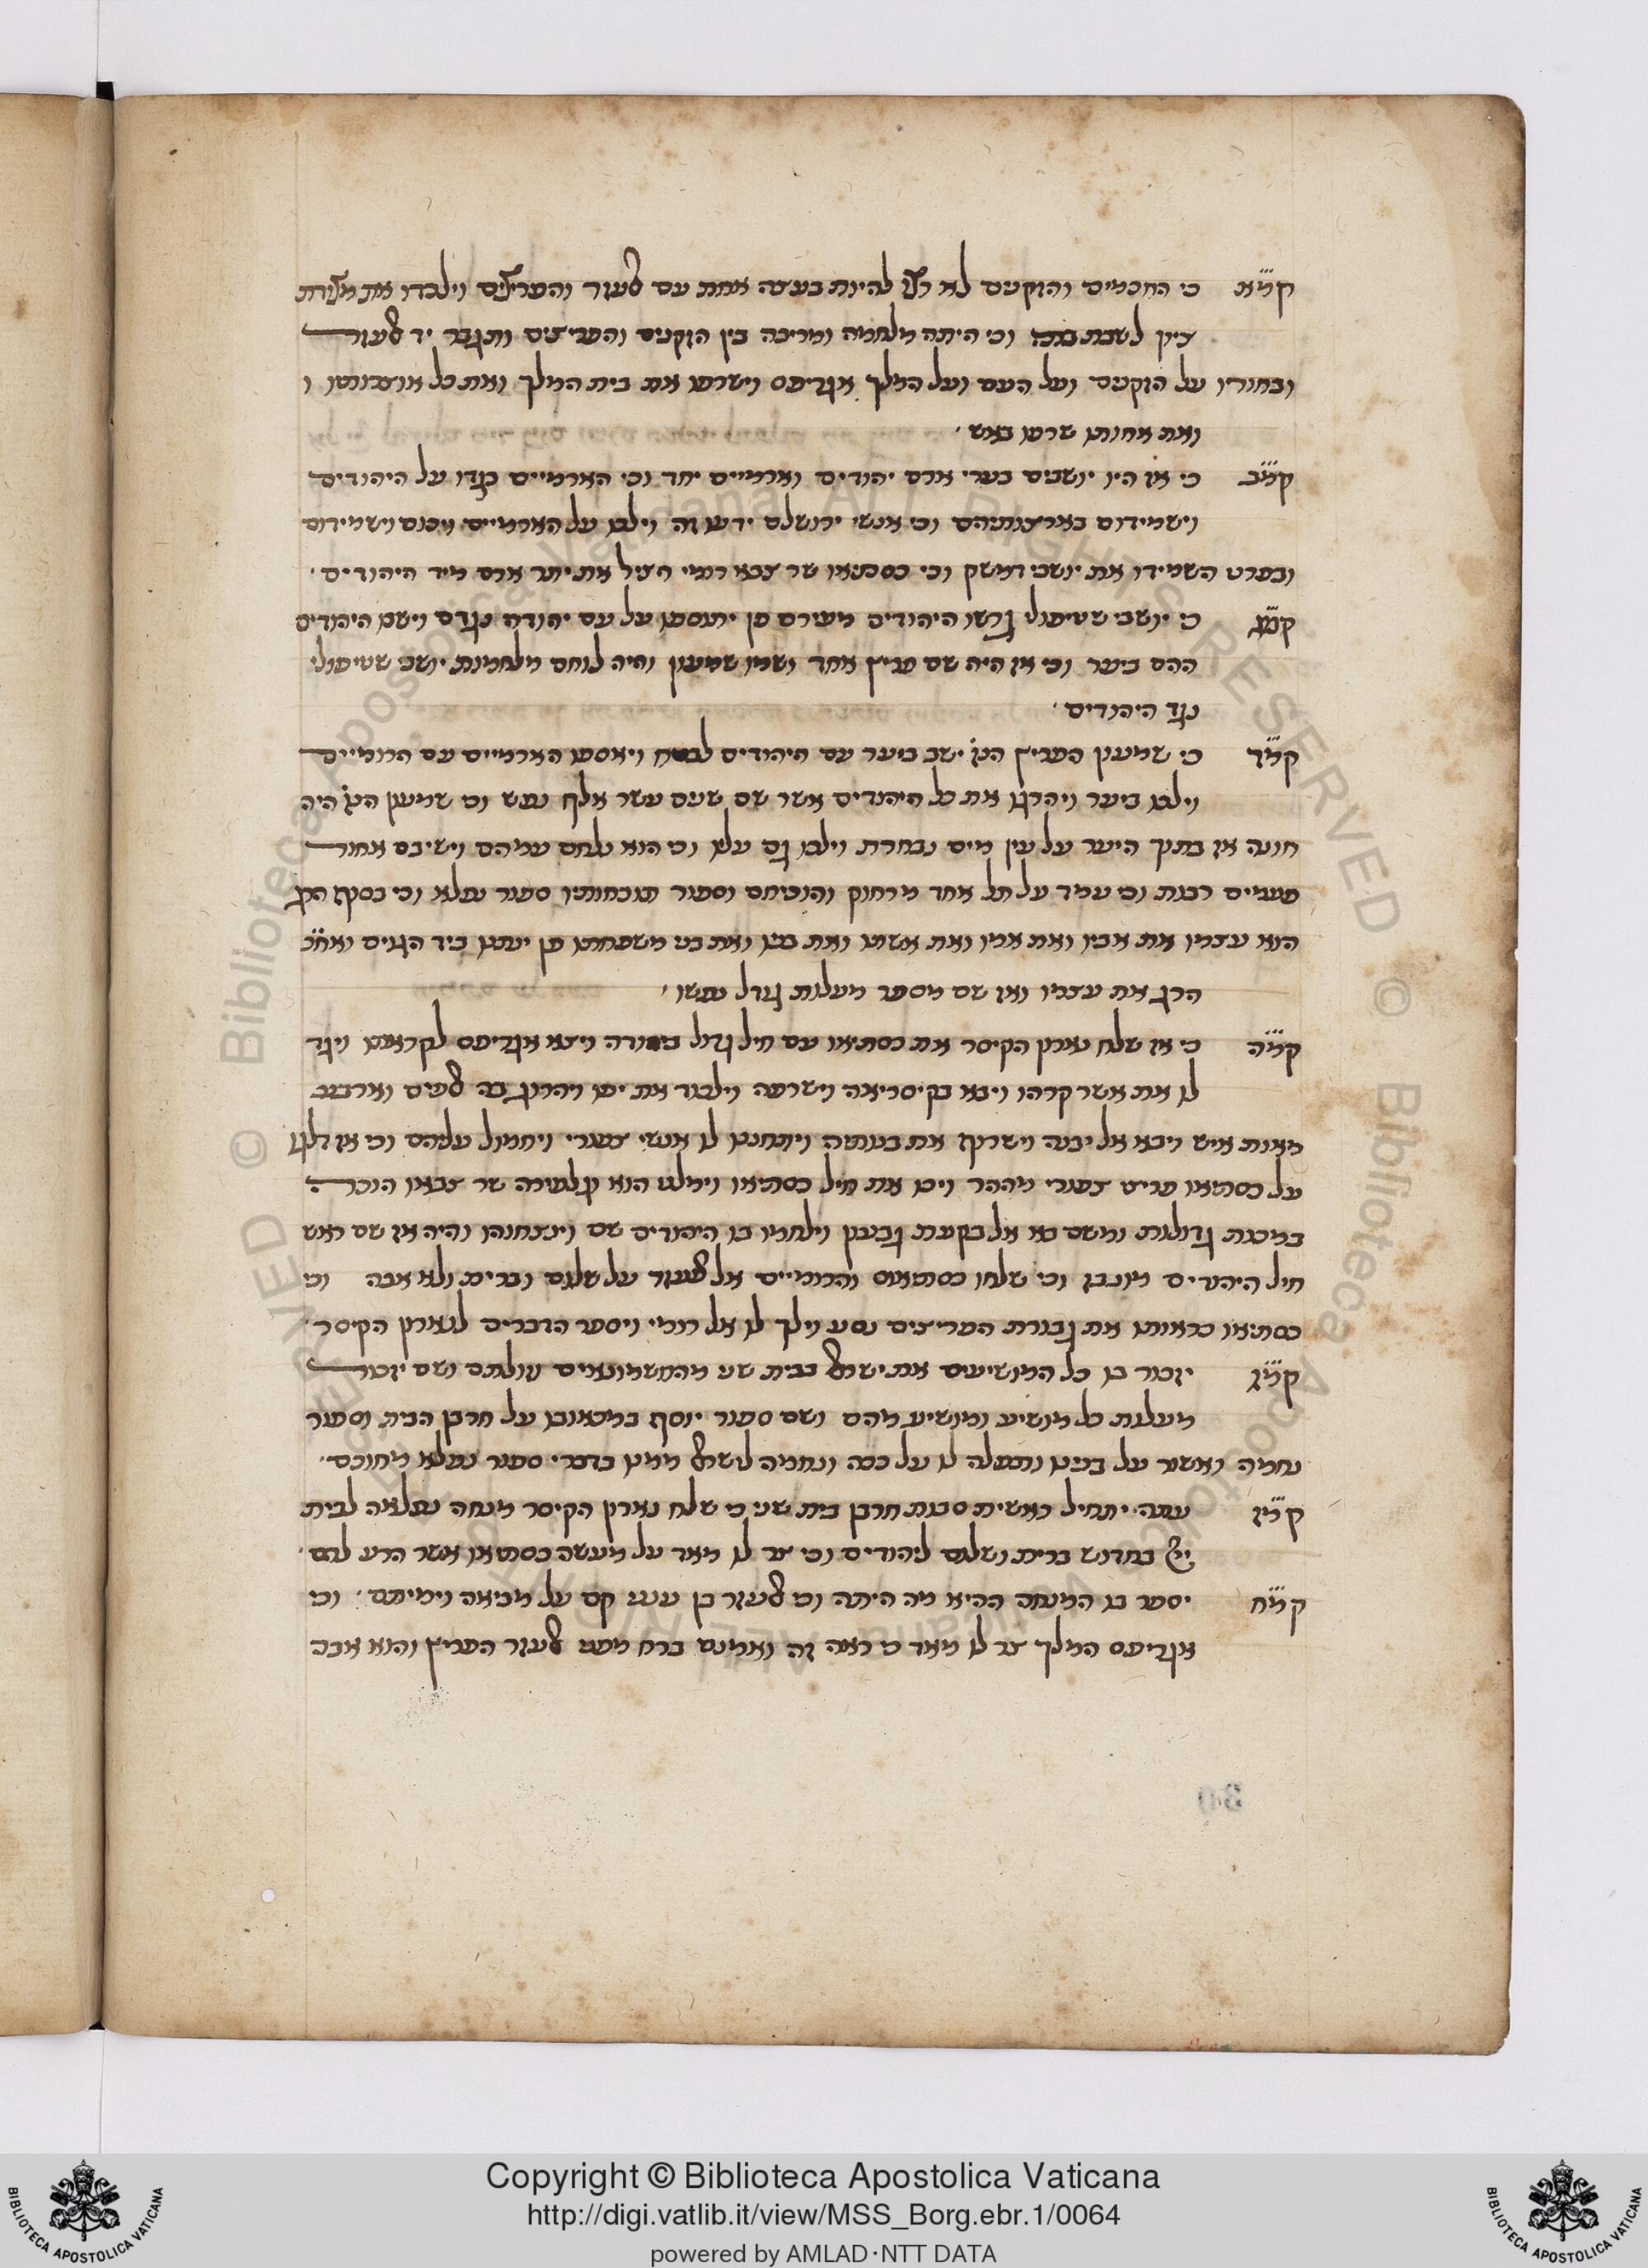 קמ״א כי החכמים והזקנים לא רצו להיות בעצה אחת עם אלעזר והפריצים וילכדו את מצודת
ציון לשבת בתוכה וכי היתה מלחמה ומריבה בין הזקנים והפריצים ותגבר יד אלעזר
ובחוריו על הזקנים ועל העם ועל המלך אגריפס וישרפו את בית המלך ואת כל אוצרותיו ו
ואת אחותו שרפו באש
קמ״ב כי אז היו יושבים בערי ארם יהודים וארמיים יחד וכי הארמיים בגדו על היהודים
וישמידום בארצותיהם וכי אנשי ירושלם ידעו זה וילכו על הארמיים ויכום וישמידום
ובפרט השמידו את יושבי דמשק וכי כסתיאו שר צבא רומי הציל את יתר ארם מיד היהודים
קמ״ג כי יושבי שטיפולי גרשו היהודים מעירם פן יתוספו על עם יהודה נגדם וישבו היהודים
ההם ביער וכי אז היה שם פריץ אחד ושמו שמעון והיה לוחם מלחמות יושבי שטיפולי
נגד היהודים
קמ״ד כי שמעון הפריץ הנז׳ ישב ביער עם היהודים לבטח ויאספו הארמיים עם הרומיים
וילכו ביער ויהרגו את כל היהודים אשר שם שנים עשר אלף נפש וכי שמעון הנז׳ היה
חונה אז בתוך היער על עין מים נבחרת וילכו גם עליו וכי הוא נלחם עמהם וישיבם אחור
פעמים רבות וכי עמד על תל אחד מרחוק והוכיחם וספור תוכחותיו ספור נפלא וכי בסוף הרג
הוא עצמו את אביו ואת אמו ואת אשתו ואת בניו ואת בני משפחתו פן ינתנו ביד הגוים ואח״כ
הרג את עצמו ואז שם מספר מעלות גודל נפשו
קמ״ה כי אז שלח נארון הקיסר את כסתיאו עם חיל גדול ביהודה ויצא אגריפס לקראתו ויגד
לו את אשר קרהו ויבא בקיסריאה וישרפה וילכוד את יפו ויהרוג בה אלפים וארבע
מאות איש ויבא אל יבנה וישרוף את בנותיה ויתחננו לו אנשי צפורי ויחמול עליהם וכי אז דלגו
על כסתיאו פריצי צפורי מההר ויכו את חיל כסתיאו וימלט הוא וגלשירה שר צבאו הוכה
במכות גדולות ומשם בא אל בקעת גבעון וילחמו בו היהודים שם וינצחוהו והיה אז שם ראש
חיל היהודים מונבז וכי שלחו כסתיאוס והרומיים אל אלעזר על שלום וברית ולא אבה וכי
כסתיאו בראותו את גבורת הפריצים נסע וילך לו אל רומי ויספר הדברים לנארון הקיסר
קמ״ו יזכור בו כל המושיעים את ישראל בבית שני מהחשמונאים וזולתם ושם יזכור
מעלות כל מושיע ומושיע מהם ושם ספור יוסף במכאובו על חרבן הבית וספור
נחמה ואשור על בניו נתעלה לו על ככה ונחמה לישראל ממנו בדברי ספור נפלא מחוכם
קמ״ז עתה יתחיל ראשית סבות חרבן בית שני כי שלח נארון הקיסר מנחה נפלאה לבית
י״י בחדוש ברית ושלום ליהודים וכי צר לו מאד על מעשה כסתיאו אשר הרע להם
קמ״ח יספר בו המנחה ההיא מה היתה וכי אלעזר בן ענני קם על מביאה וימיתם וכי
אגריפס המלך צר לו מאד כי ראה זה ואמנם ברח מפני אלעזר הפריץ והוא אבד
Copyright © Biblioteca Apostolica Vaticana
http://digi.vatlib.it/view/MSS_Borg.ebr.1/0064
powered by AMLAD·NTT DATA